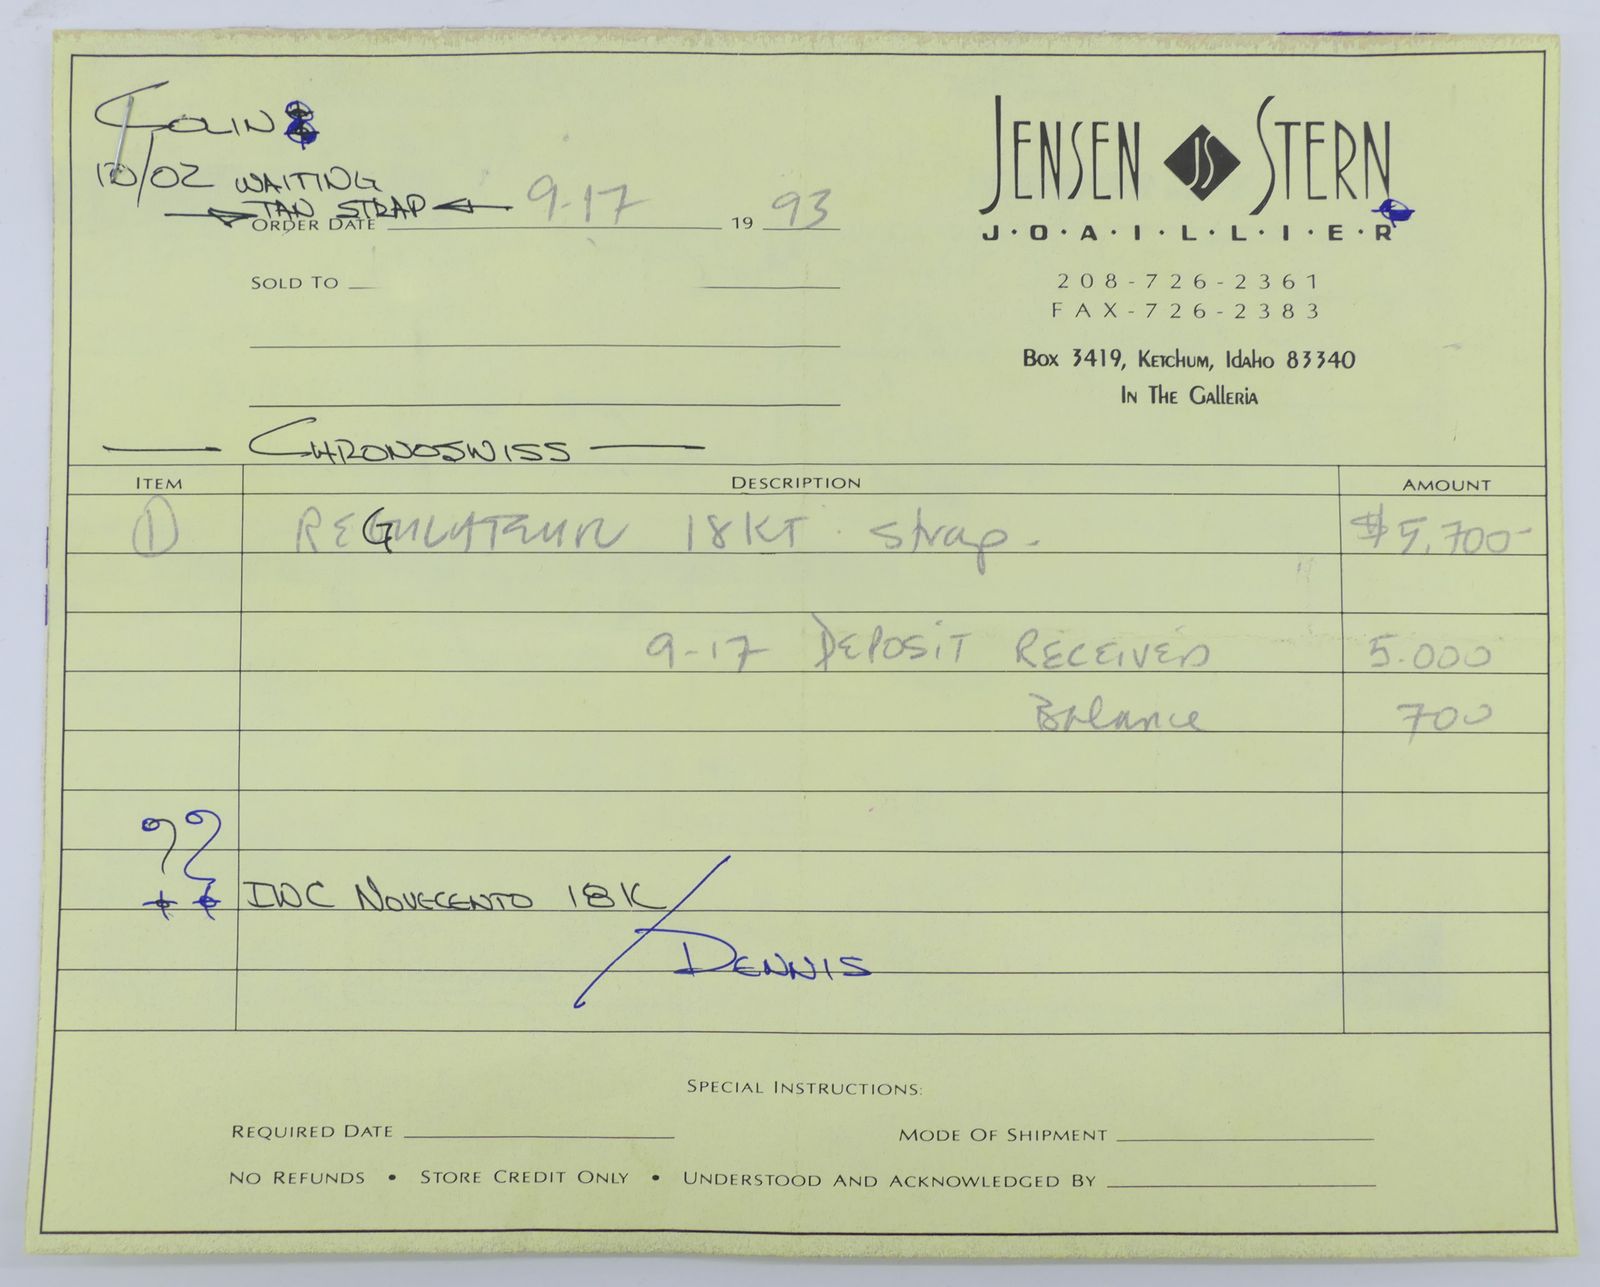 COLIN
10/02 WAITING
TAN STRAP
ORDER DATE 9-17 19 93
SOLD TO
JENSEN JS STERN
J·O·A·I·L·L·I·E·R
208-726-2361
FAX-726-2383
Box 3419, Ketchum, Idaho 83340
In The Galleria
CHRONOSWISS
ITEM DESCRIPTION AMOUNT
1 REGULATEUR 18KT strap. $5,700-
9-17 DEPOSIT RECEIVED 5.000
Balance 700
??
IWC NOVECENTO 18K
DENNIS
SPECIAL INSTRUCTIONS:
REQUIRED DATE MODE OF SHIPMENT
NO REFUNDS • STORE CREDIT ONLY • UNDERSTOOD AND ACKNOWLEDGED BY